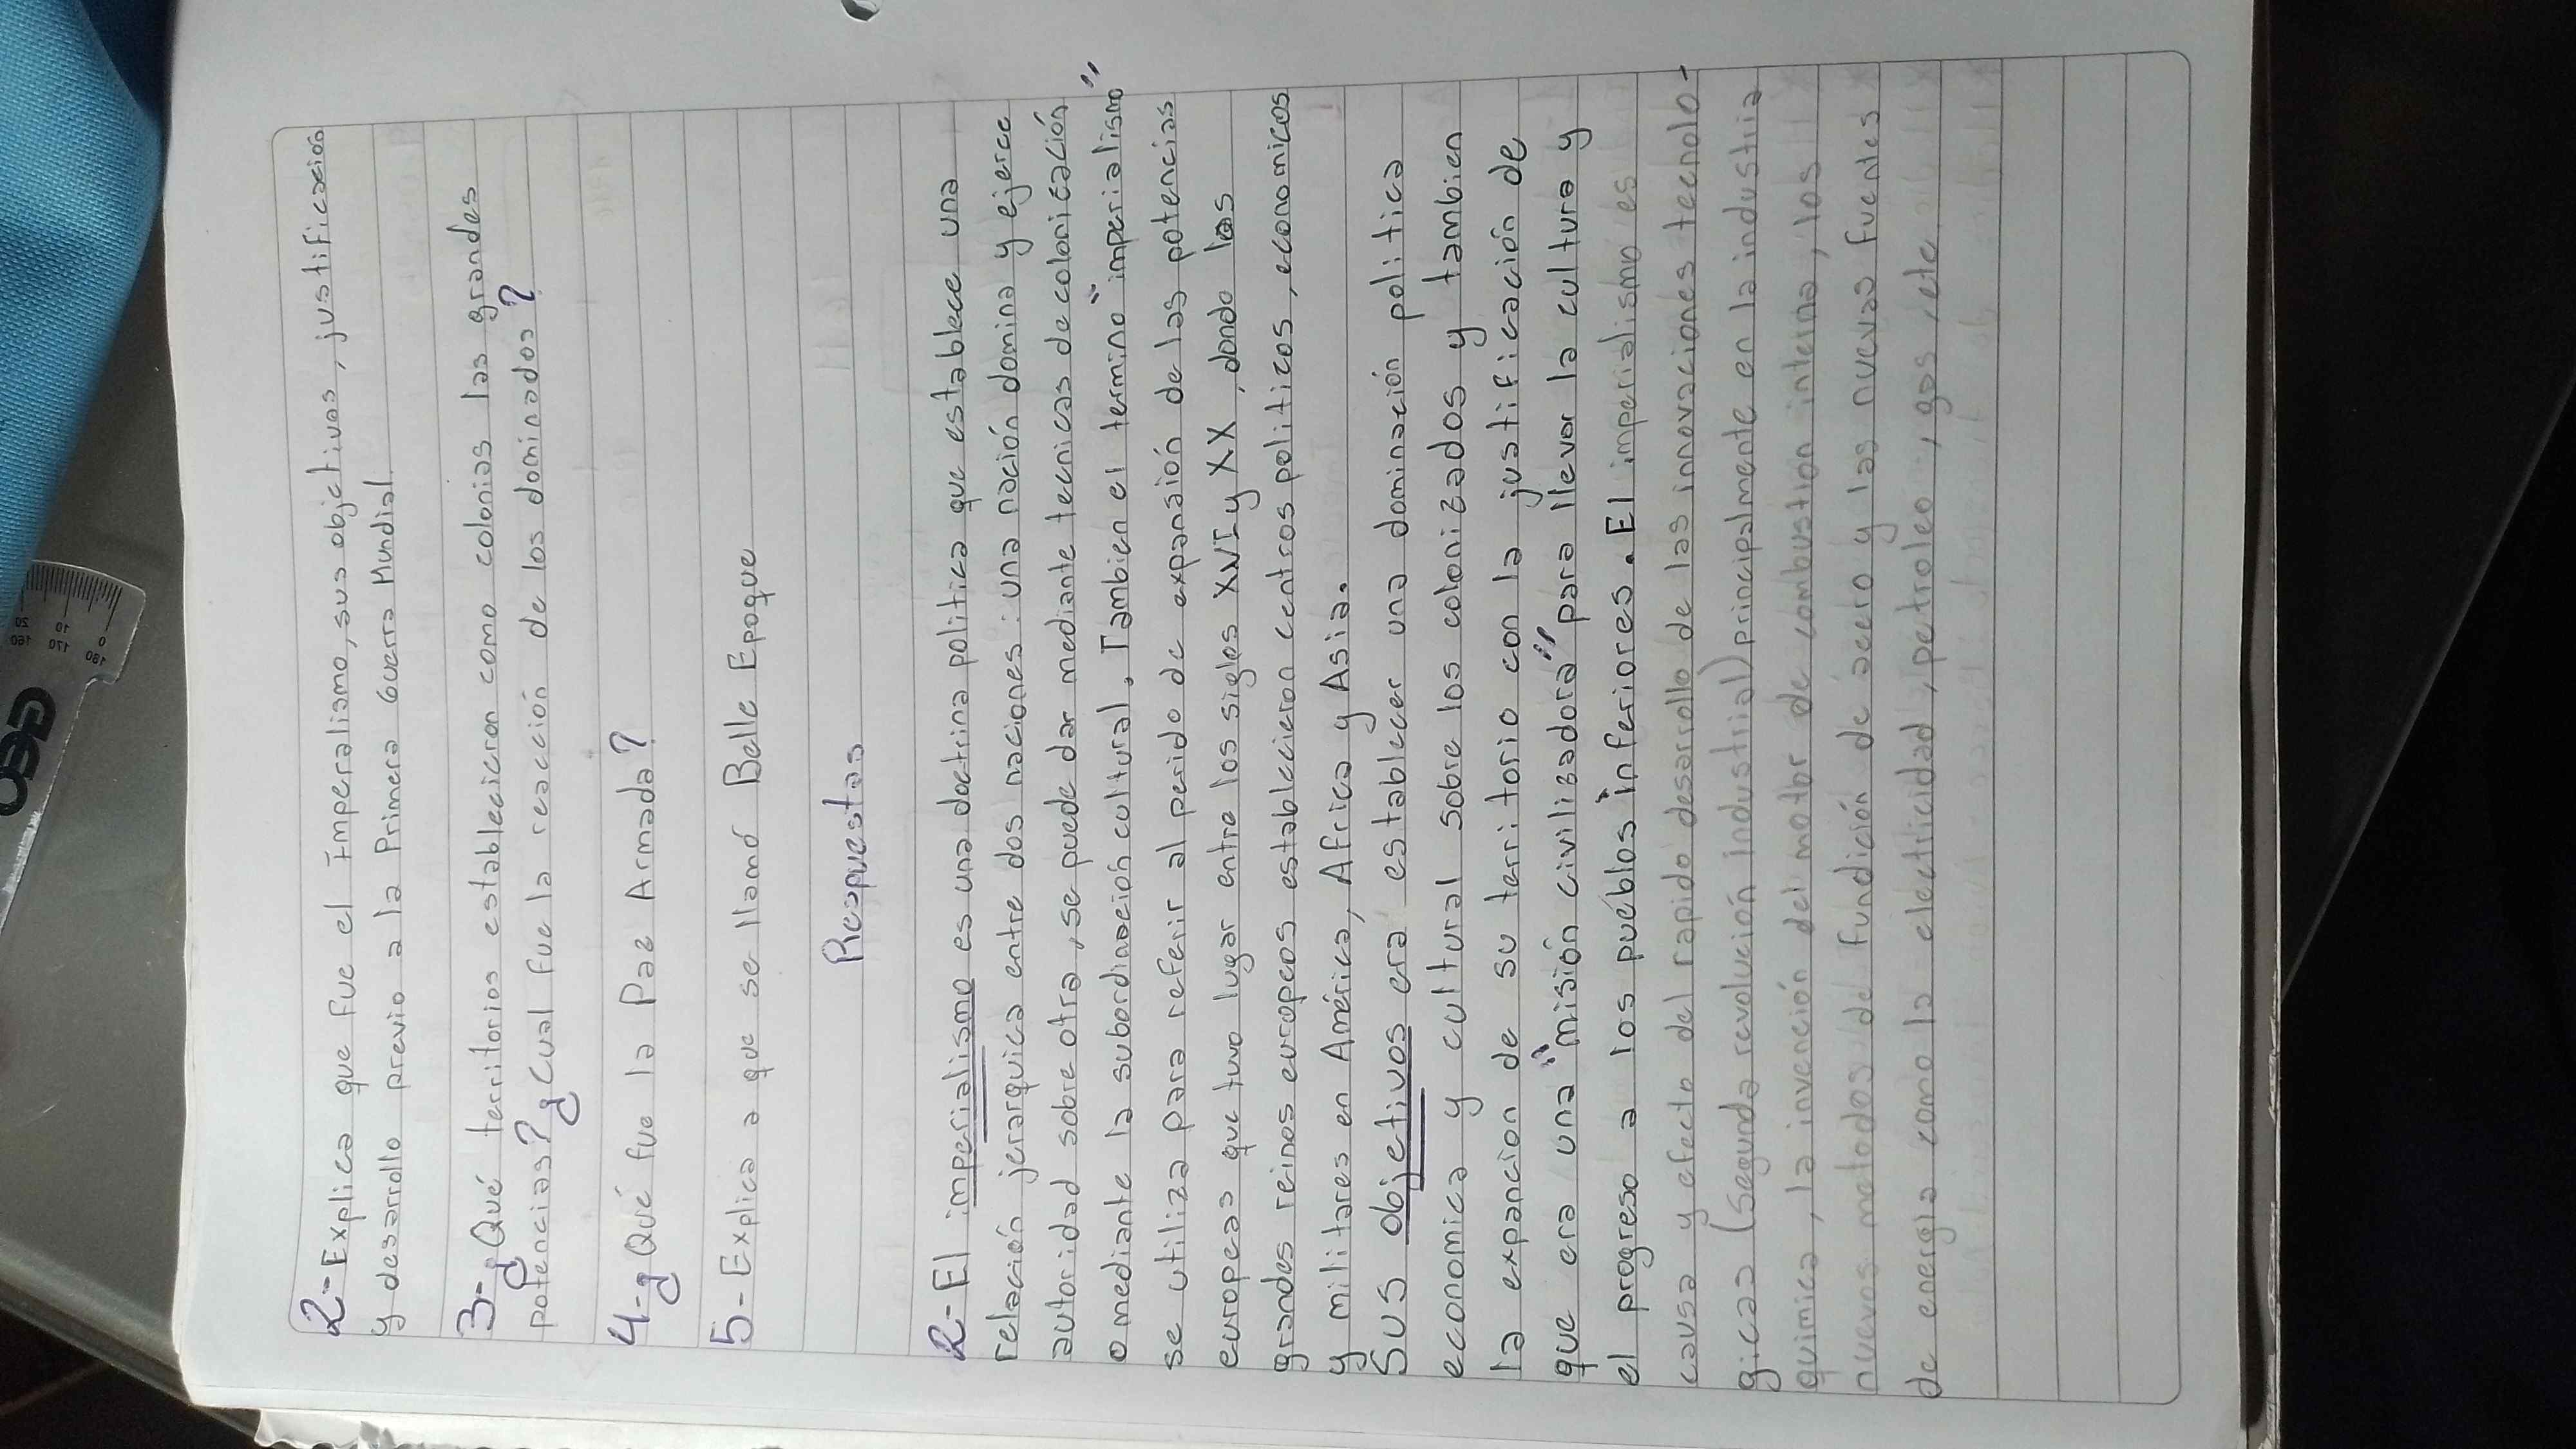 2-Explica que fue el Imperalismo, sus objetivos, justificacios
y desarrollo previo a la Primera Guerra Mundial.
3-¿Qué territorios establecieron como colonias las grandes
potencias? ¿Cual fue la reacción de los dominados?
4-¿Qué fue la Paz Armada?
5-Explica a que se llamó Belle Epoque
Respuestas
2-El imperialismo es una doctrina politica que establece una
relación jerarquica entre dos naciones: una nación domina y ejerce
autoridad sobre otra, se puede dar mediante tecnicas de colonización
o mediante la subordinación cultural. Tambien el termino "imperialismo"
se utiliza para referir al perido de expansión de las potencias
europeas que tuvo lugar entre los siglos XVI y XX, donde los
grandes reinos europeos establecieron centros politicos, economicos
y militares en América, Africa y Asia.
Sus objetivos era establecer una dominación politica
economica y cultural sobre los colonizados y tambien
la expancion de su territorio con la justificación de
que era una "misión civilizadora" para llevar la cultura y
el progreso a los pueblos inferiores. El imperialismo es
causa y efecto del rapido desarrollo de las innovaciones tecnolo-
gicas (Segunda revolución industrial) principalmente en la industria
quimica, la invención del motor de combustion interna, los
nuevos metodos de fundición de acero y las nuevas fuentes
de energia como la electricidad, petroleo, gas, etc
GEO
0
10
20
180
170
160